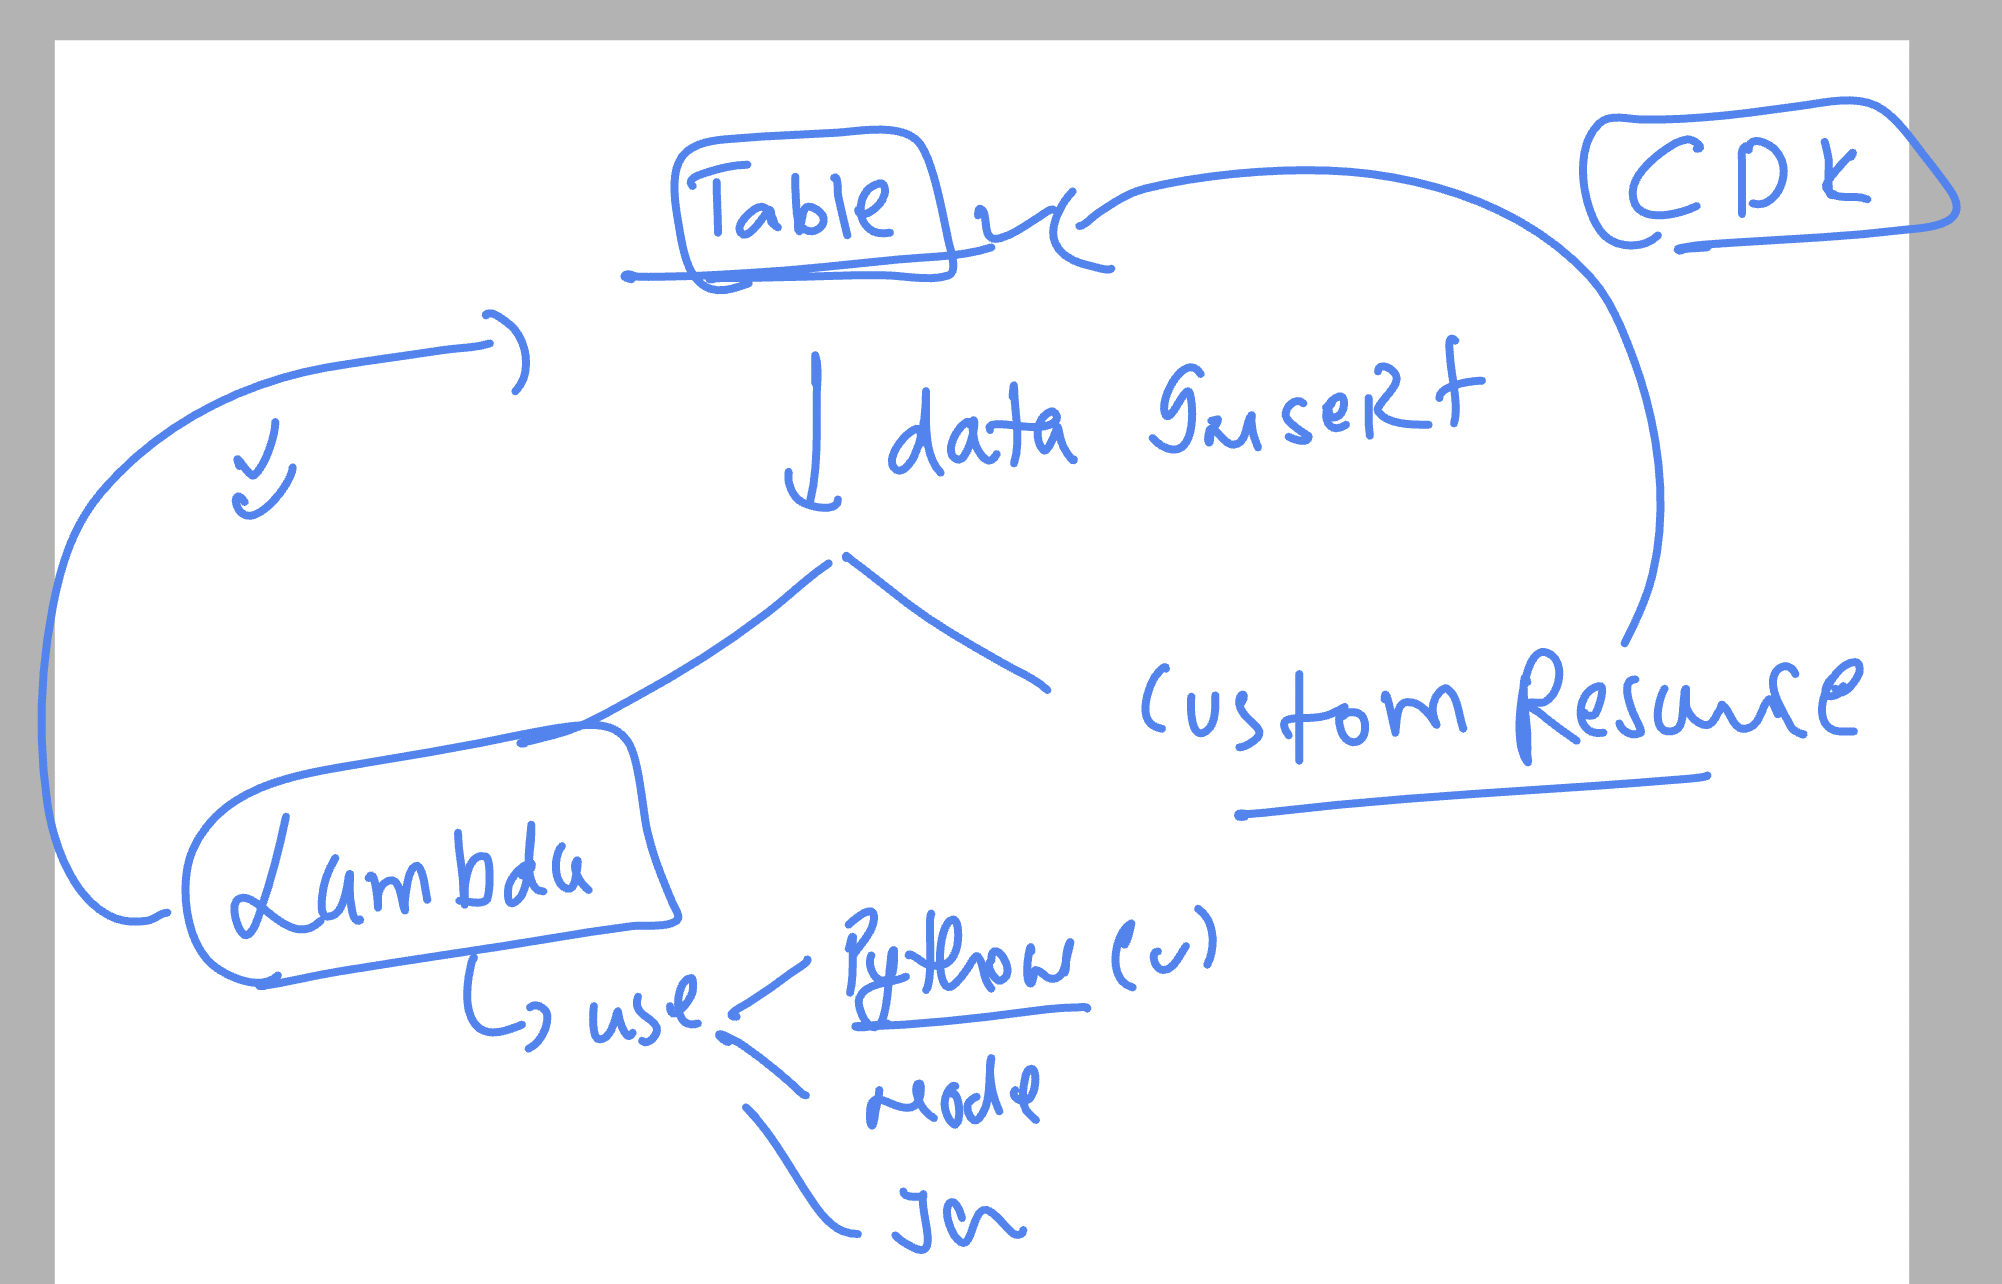 Table
CDK
data Insert
Custom Resource
Lambda
use
Python (v)
node